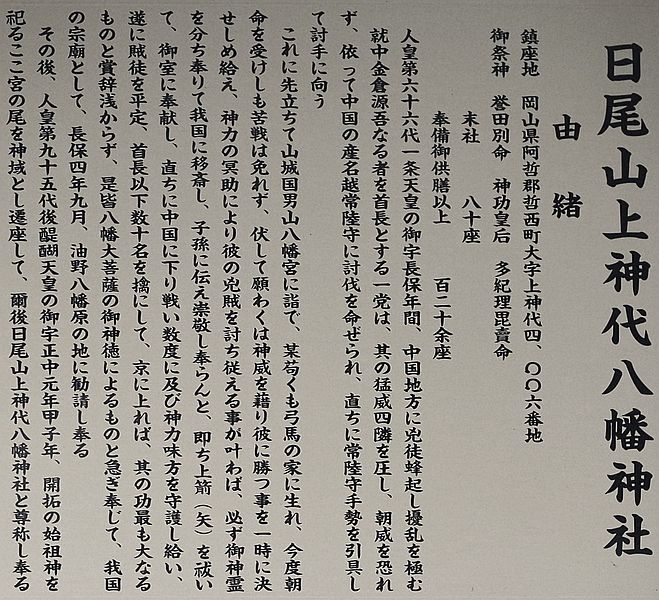 日尾山上神代八幡神社
由緒
鎮座地　岡山県阿哲郡哲西町大字上神代四、〇〇六番地
御祭神　誉田別命　神功皇后　多紀理毘賣命
末社　八十座
奉備御供膳以上　百二十余座
人皇第六十六代一条天皇の御宇長保年間、中国地方に兇徒蜂起し擾乱を極む
就中金倉源吾なる者を首長とする一党は、其の猛威四隣を圧し、朝威を恐れ
ず、依って中国の産名越常陸守に討伐を命ぜられ、直ちに常陸守手勢を引具し
て討手に向う
これに先立ちて山城国男山八幡宮に詣で、某苟くも弓馬の家に生れ、今度朝
命を受けしも苦戦は免れず、伏して願わくは神威を藉り彼に勝つ事を一時に決
せしめ給え、神力の冥助により彼の兇賊を討ち従える事が叶わば、必ず御神霊
を分ち奉りて我国に移斎し、子孫に伝え崇敬し奉らんと、即ち上箭（矢）を祓い
て、御室に奉献し、直ちに中国に下り戦い数度に及び神力味方を守護し給い、
遂に賊徒を平定、首長以下数十名を擒にして、京に上れば、其の功最も大なる
ものと賞辞浅からず、是皆八幡大菩薩の御神徳によるものと急ぎ奉じて、我国
の宗廟として、長保四年九月、油野八幡原の地に勧請し奉る
その後、人皇第九十五代後醍醐天皇の御宇正中元年甲子年、開拓の始祖神を
祀るここ宮の尾を神域とし遷座して、爾後日尾山上神代八幡神社と尊称し奉る